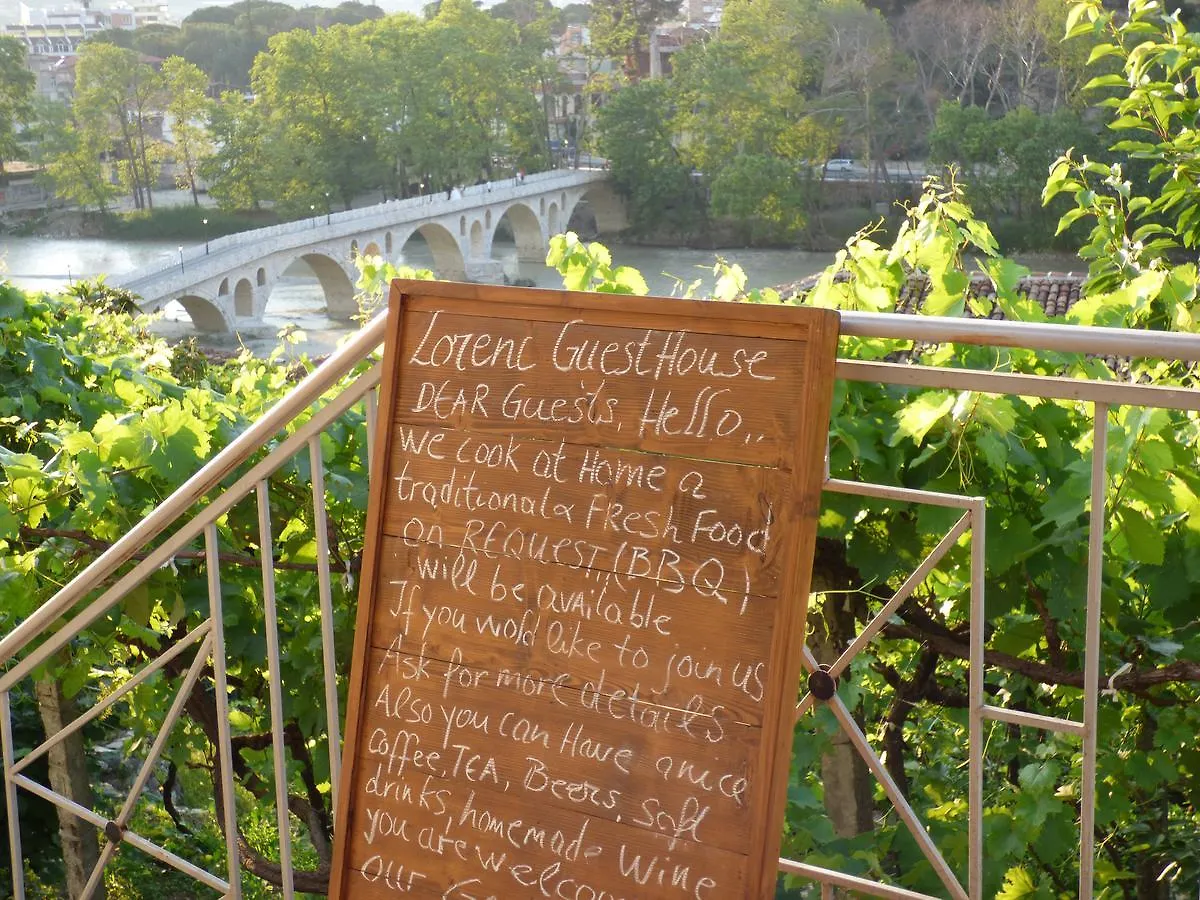 Lorenc GuestHouse
DEAR Guests, Hello,,
We cook at Home a
traditional & Fresh Food
on REQUEST,, (BBQ)
will be available
If you wold like to join us
Ask for more details
Also you can Have a nice
coffee, TEA, Beers, Soft
drinks, homemade Wine
you are welcom
our